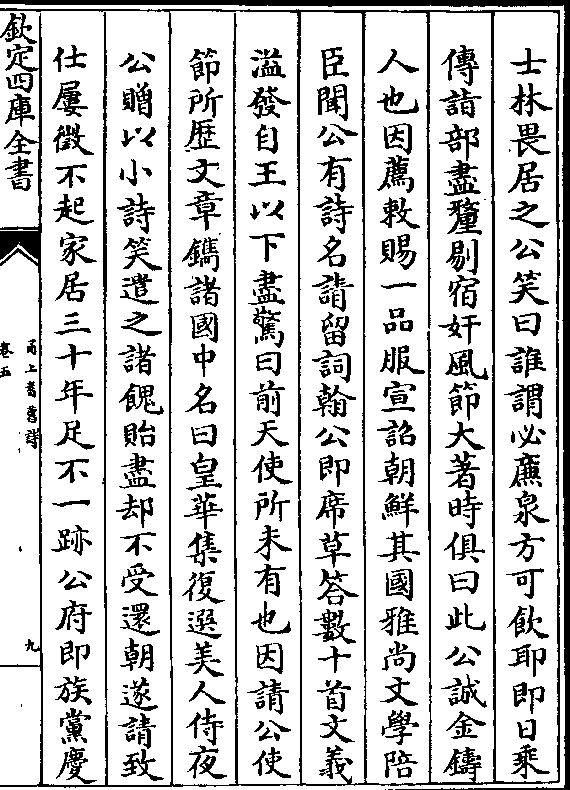 士林畏居之公笑曰誰謂必廉泉方可飲耶即日乘
傳詣部盡釐剔宿奸風節大著時俱曰此公誠金鑄
人也因薦敕賜一品服宣詔朝鮮其國雅尚文學陪
臣聞公有詩名請留詞翰公即席草答數十首文義
溢發自王以下盡驚曰前天使所未有也因請公使
節所歷文章鐫諸國中名曰皇華集復選美人侍夜
公贈以小詩笑遣之諸餽貽盡却不受還朝遂請致
仕屢徵不起家居三十年足不一跡公府即族黨慶
欽定四庫全書
甬上耆舊詩
卷五
九